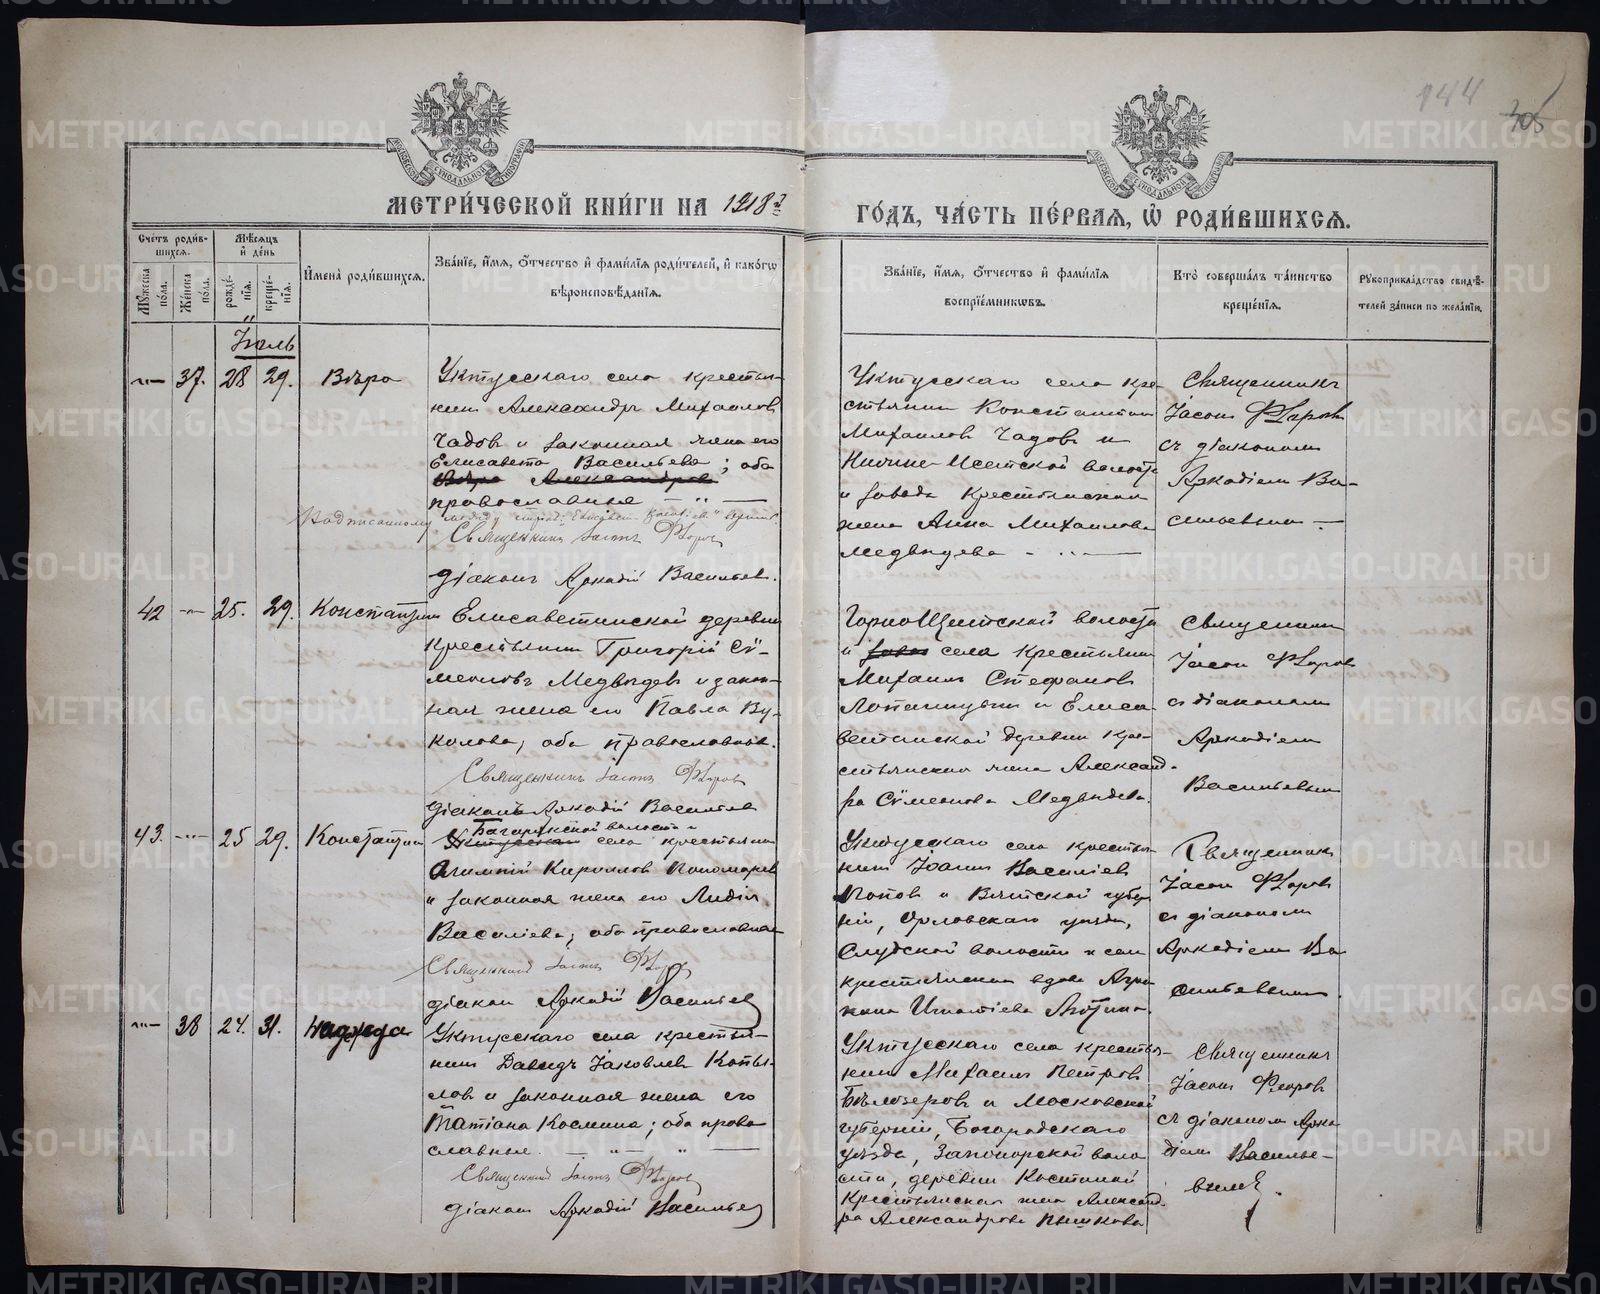 144
305
МОСКОВСКОЙ СѴНОДАЛЬНОЙ ТИПОГРАФІИ
МОСКОВСКОЙ СѴНОДАЛЬНОЙ ТИПОГРАФІИ
МЕТРИ́ЧЕСКОЙ КНИ́ГИ НА 1918 й
ГО́ДЪ, ЧА́СТЬ ПЕ́РВАЯ, Ѽ РОДИ́ВШИХСЯ.
Сче́тъ роди́в-
шихся.
Мꙋ́жеска по́ла.
Же́нска по́ла.
Мѣ́сяцъ
и҆ де́нь
рожде́-
нія.
креще́-
нія.
И҆мена̀ роди́вшихся.
Зва́ніе, и҆́мя, ѻ҆́тчество и҆ фами́лія роди́телей, и҆ како́гѡ
вѣроисповѣ́данія.
Зва́ніе, и҆́мя, ѻ҆́тчество и҆ фами́лія
воспріе́мниковъ.
Кто̀ соверша́лъ та́инство
креще́нія.
Рꙋкоприкла́дство свидѣ́-
телей за́писи по жела́нію.
Іюль
-"- 37. 28 29. Вѣра
Уктусскаго села крестья-
нинъ Александръ Михаилов
Чадовъ и законная жена его
Елисавета Васильева; оба
Вѣра Александров
православные — " —
Надписанному
Священникъ Іасонъ Флоров
діаконъ Аркадій Васильев.
Уктусскаго села кре-
стьянинъ Константин
Михаилов Чадовъ и
Нижне-Исетской волости
и завода крестьянская
жена Анна Михаилова
Медвѣдева - " —
Священникъ
Іасонъ Флоровъ
съ діакономъ
Аркадіемъ Ва-
сильевымъ —
42 -"- 25. 29. Константин
Елисаветинской деревни
крестьянинъ Григорій Сѵ-
меоновъ Медвѣдевъ и закон-
ная жена его Павла Ву-
колова, оба православные.
Священникъ Іасонъ Флоров
діаконъ Аркадій Васильев
ГорноЩитской волости
и заво села крестьянин
Михаилъ Стефанов
Лопатицынъ и Елиса-
ветинской деревни кре-
стьянская жена Александ-
ра Сѵмеонова Медвѣдева.
Священникъ
Іасон Флоров
съ діакономъ
Аркадіемъ
Васильевымъ
43. -"- 25 29. Константин
Багарякской волости и
Уктусскаго села крестьянин
Алимпій Кириллов Пономарев
и законная жена его Лидія
Василіева; оба православные
Священникъ Іасонъ Флоров
діакон Аркадій Васильев
Уктусскаго села крестья-
нинъ Іоаннъ Василіев
Попов и Вятской губер
ніи, Орловскаго уѣзда,
Слудской волости и села
крестьянская вдова Агри
пина Игнатіева
Священникъ
Іасон Флоров
съ діакономъ
Аркадіемъ Ва
сильевымъ.
-"- 38 24. 31. Надежда
Уктусскаго села крестья-
нинъ Давидъ Іаковлев Копы-
ловъ и законная жена его
Татіана Космина; оба право
славные. — " — " —
Священникъ Іасонъ Флоров
діаконъ Аркадій Васильев
Уктусскаго села крестья-
нинъ Михаилъ Петров
Бѣлозеровъ и Московской
губерніи, Богородскаго
уѣзда, Запонорской воло
сти, деревни Костиной
крестьянская жена Александ-
ра Александрова Пышкова
Священникъ
Іасон Флоровъ
съ діакономъ Арка
діемъ Василье-
вымъ.
METRIKI.GASO-URAL.RU